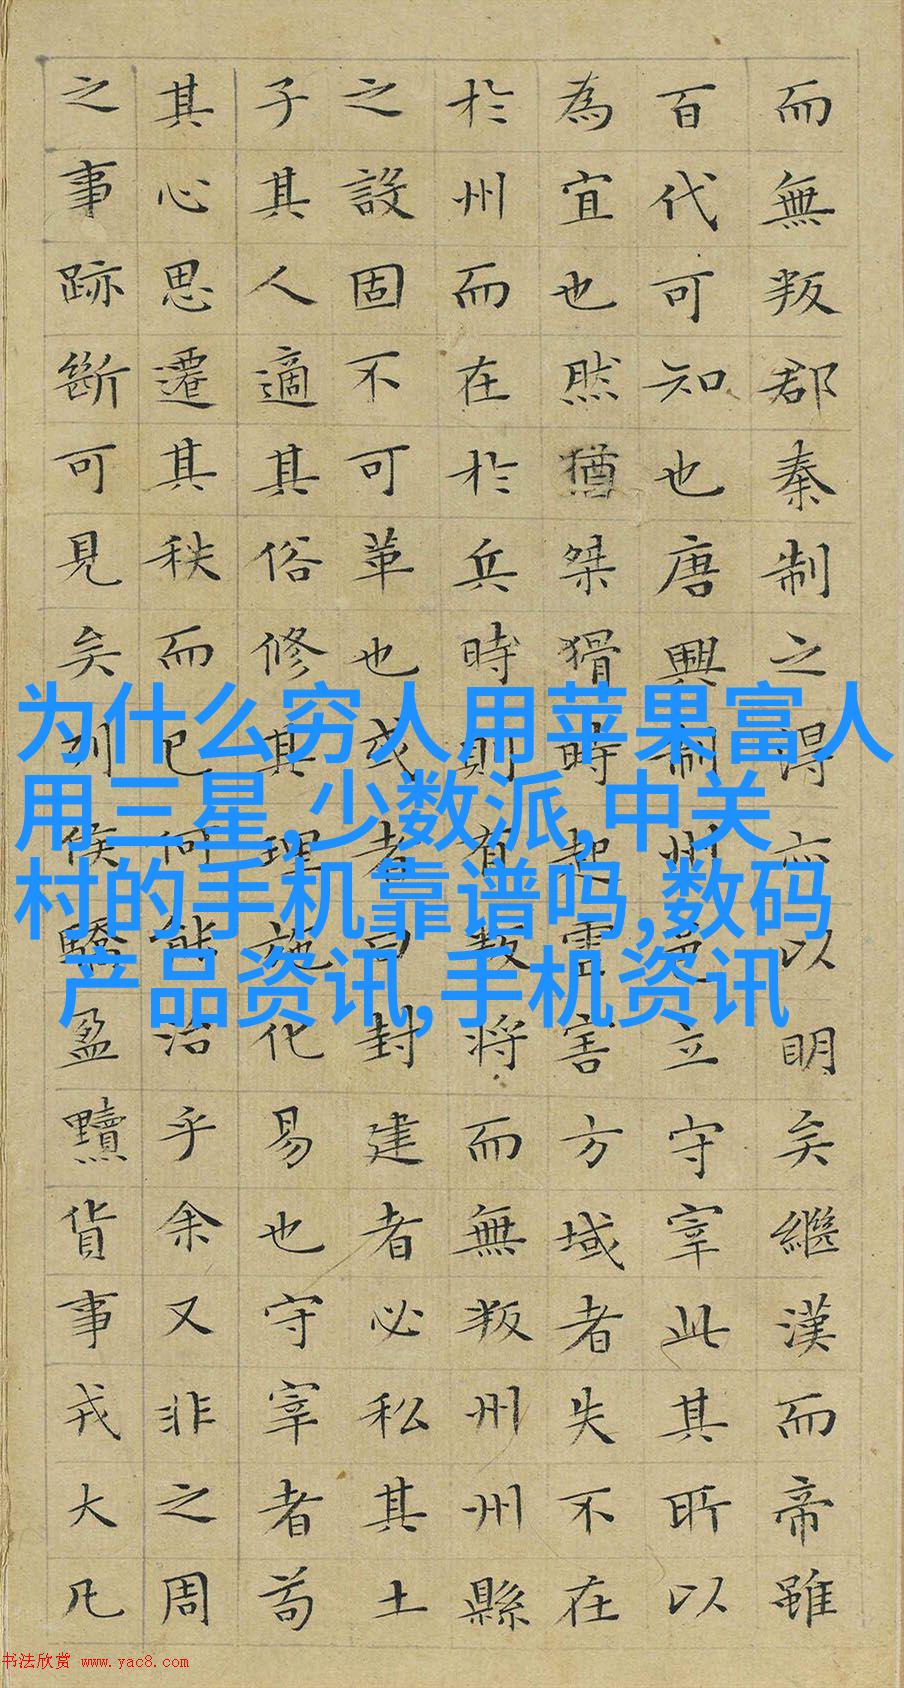 而無叛郡秦制之得亦以明矣繼漢而帝雖
百代可知也唐興制州邑立守宰此其所以
為宜也然猶桀猾時起虐害方域者失不在
於州而在於兵時則有叛將而無叛州州縣
之設固不可革也或者曰封建者必私其土
子其人適其俗修其理施化易也守宰者苟
其心思遷其秩而已何能治乎余又非之周
之事跡斷可見矣列侯驕盈黷貨事戎大凡
为什么穷人用苹果富人
用三星,少数派,中关
村的手机靠谱吗,数码
产品资讯,手机资讯
书法欣赏 www.yac8.com